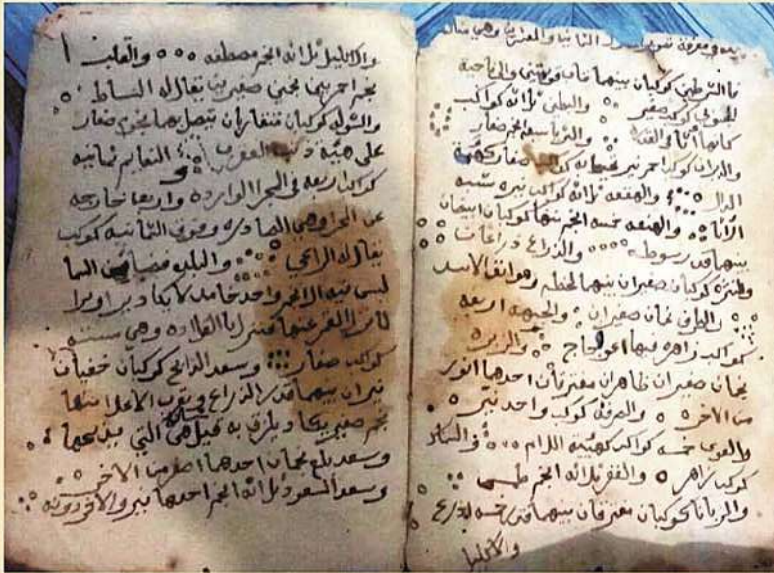 ومعرفة صور الثمانية والعشرين وهي هذه
فالشرطين كوكبان بينهما قاب قوسين والى ناحية
الجنوبي كوكب صغير والبطين ثلاثة كواكب
كانها اثافي القدر والثريا سبعة انجم صغار
والدبران كوكب احمر نير صغار كهيئة
الدال والهقعة ثلاثة كواكب نيره شبه
الاثافي والهنعة خمسة انجم منها كوكبان ابيضان
بينهما قدر سوط والذراع ذراعات
والنثره كوكبان صغيران بينهما لطخة وهو انف الاسد
الطرف نجمان صغيران والجبهة اربعة
كواكب زاهره فيها اعوجاج والزبره
نجمان صغيران ظاهران مفترقان احدهما انور
من الاخر والصرفه كوكب واحد نير
والعوى خمسة كواكب كهيئة اللام والسماك
كوكب زاهر والغفر ثلاثة انجم طمس
والزبانا كوكبان مفترقان بينهما قدر خمسة اذرع
والاكليل
والاكليل ثلاثة انجم مصطفه والقلب
نجم احمر بين نجمين صغيرين يقال له النياط
والشوله كوكبان متقاربان يتصل بهما نجوم صغار
على هيئة ذنب العقرب النعايم ثمانية
كواكب اربعة في المجرا الوارده واربعا خارجه
عن المجرا وهي الصادره وفوق الثمانيه كوكب
يقال له الراعي والبلده فضا من السما
ليس فيه الا نجم واحد خامد لا يكاد يرا ويرا
القمر عنها فنزل بالقلاده وهي ستة
كواكب صغار وسعد الذابح كوكبان خفيان
نيران بينهما قدر الذراع وبقرب الاعلا منهما
نجم صغير يكاد يلزق به قيل هي شاته التي يذبحها
وسعد بلع نجمان احدهما اصغر من الاخر
وسعد السعود ثلاثة انجم احدها نير والاخر دونه